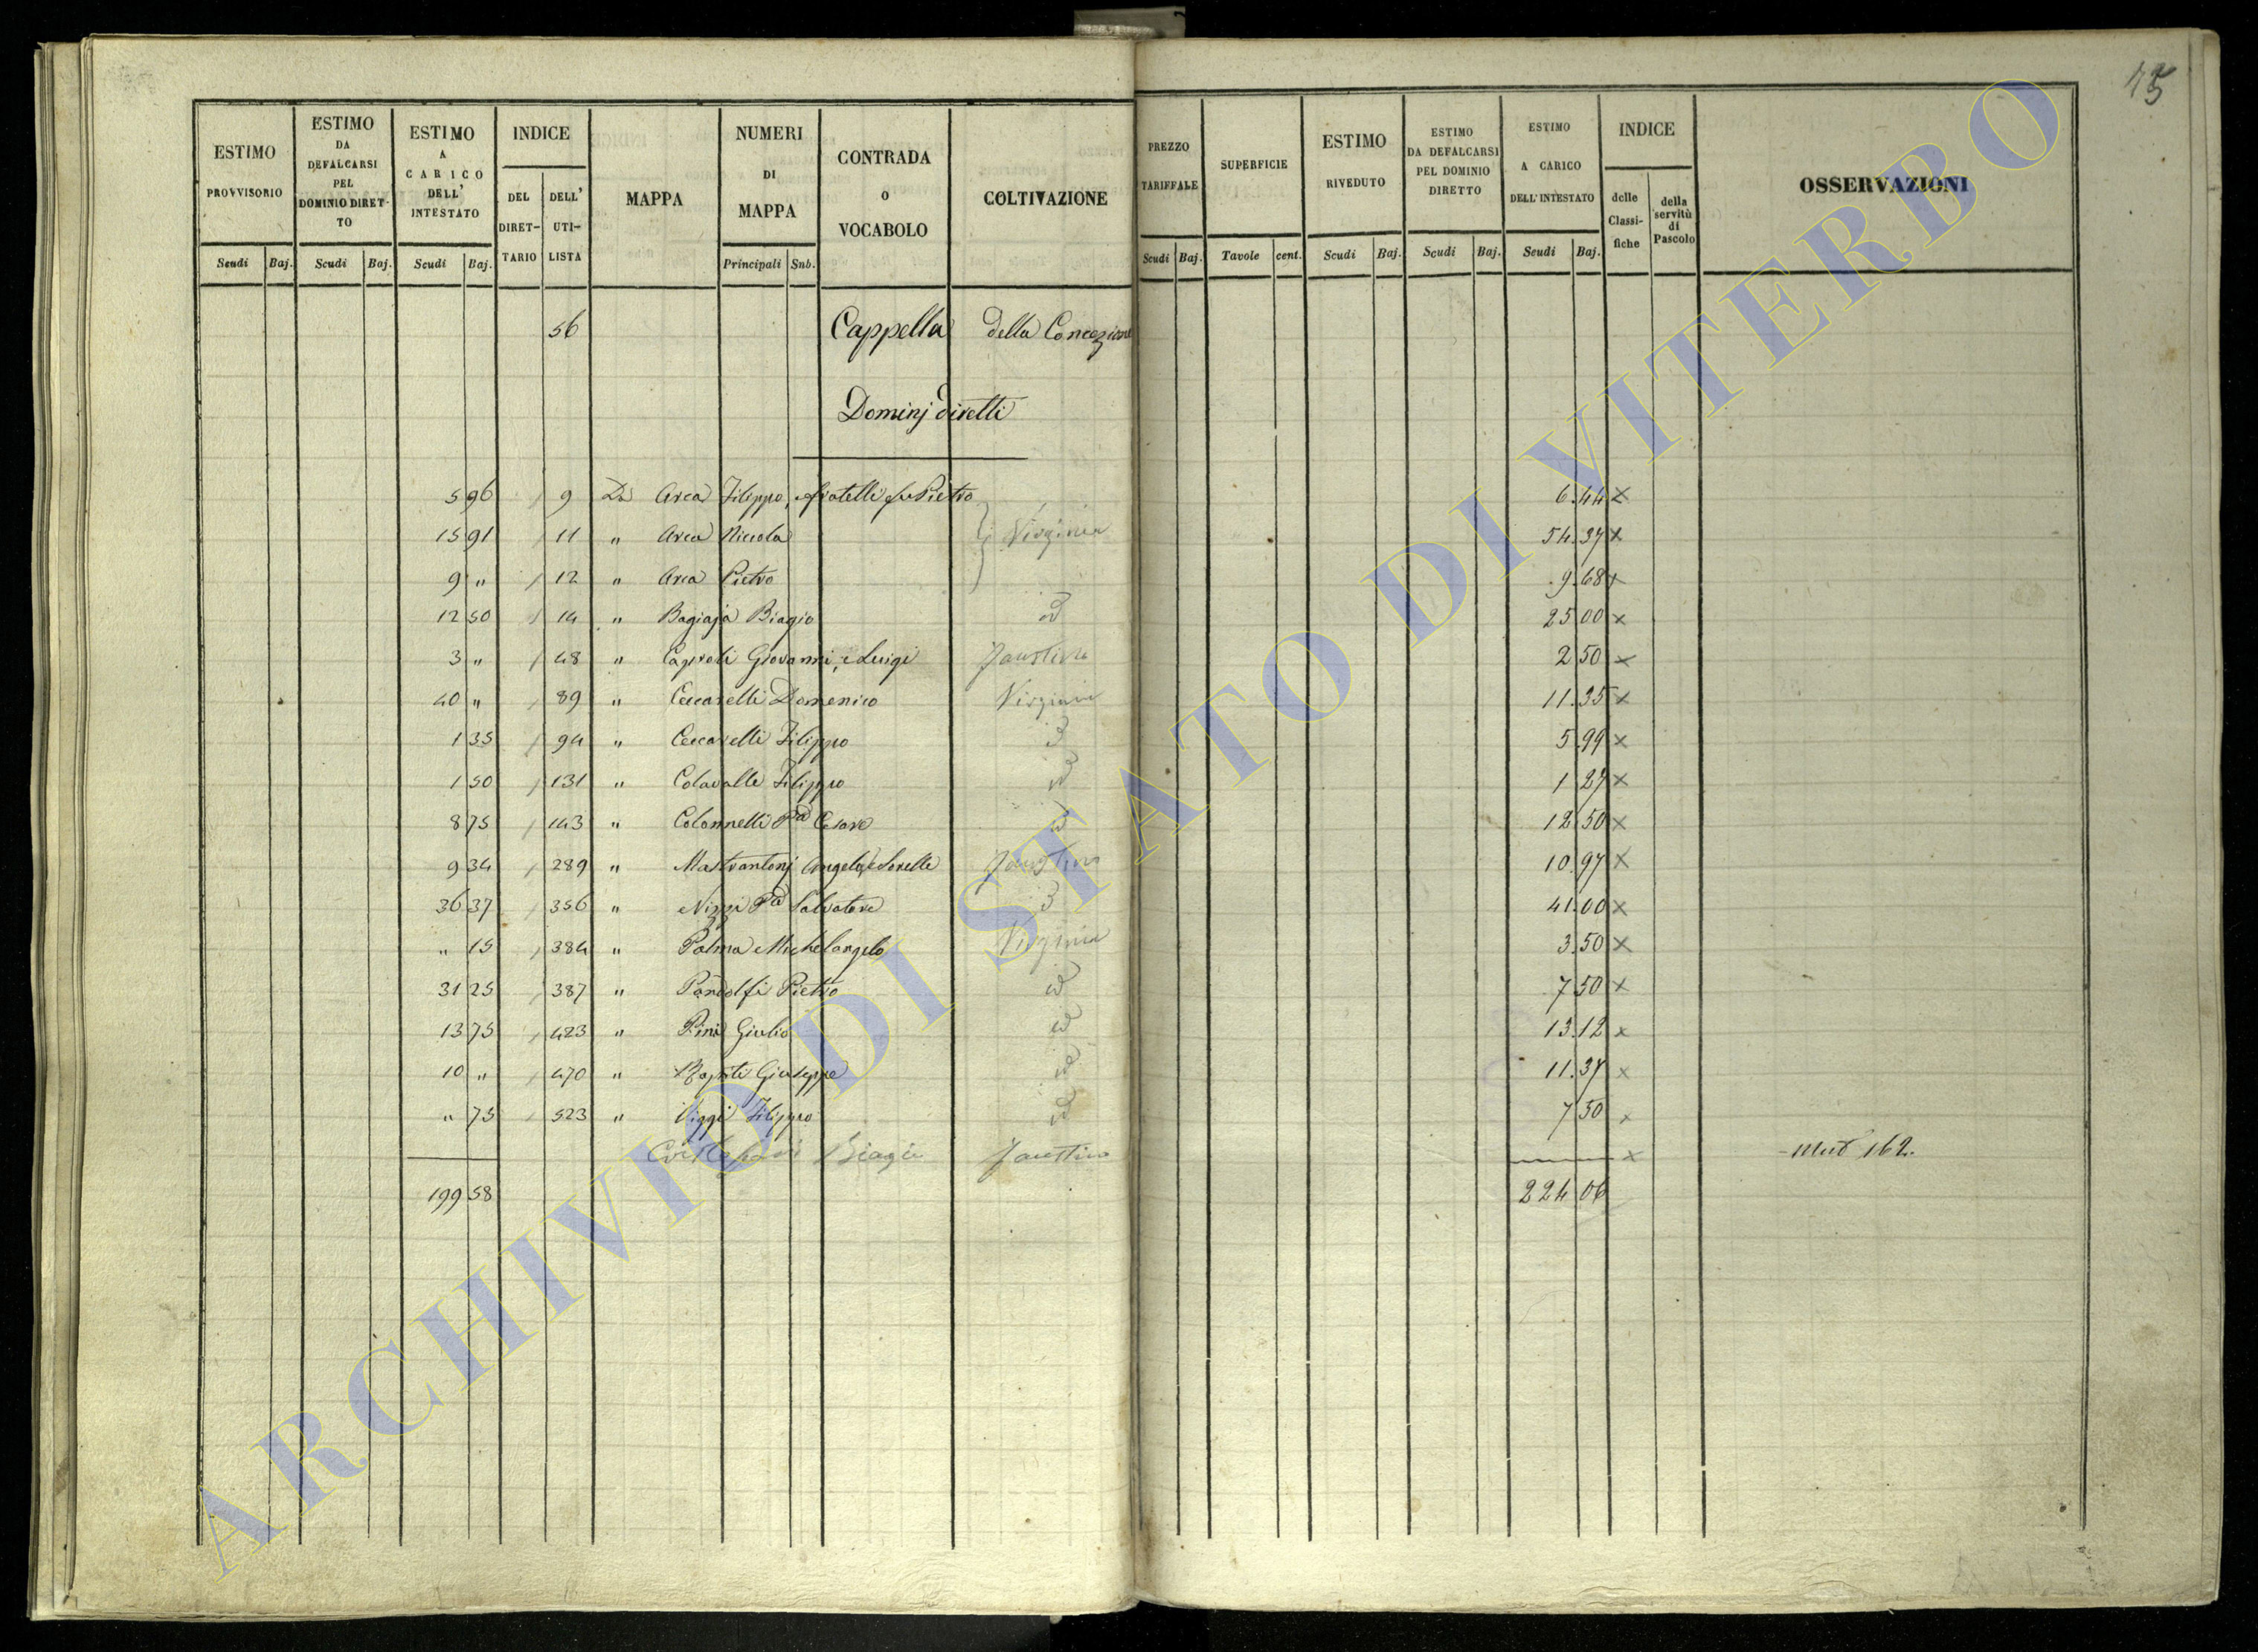 75
ESTIMO PROVVISORIO
ESTIMO DA DEFALCARSI PEL DOMINIO DIRETTO
ESTIMO A CARICO DELL' INTESTATO
INDICE
DEL DIRETTARIO
DELL' UTILISTA
MAPPA
NUMERI DI MAPPA
CONTRADA O VOCABOLO
COLTIVAZIONE
PREZZO TARIFFALE
SUPERFICIE
ESTIMO RIVEDUTO
ESTIMO DA DEFALCARSI PEL DOMINIO DIRETTO
ESTIMO A CARICO DELL'INTESTATO
INDICE
delle Classifiche
della servitù di Pascolo
OSSERVAZIONI
Scudi Baj. Scudi Baj. Scudi Baj. Principali Sub. Scudi Baj. Tavole cent. Scudi Baj. Scudi Baj. Scudi Baj.
56 Cappella della Concezione
Dominj diretti
5 96 9 Da Arca Filippo, e fratelli fu Pietro 6.44 x
15 91 11 " Arca Niccola Virginia 54.37 x
9 " 12 " Arca Pietro 9.68 x
12 50 14 " Bagiaja Biagio id 25 00 x
3 " 48 " Caproli Giovanni, e Luigi Faustina 2 50 x
40 " 89 " Ceccarelli Domenico Virginia 11.35 x
1 35 94 " Ceccarelli Filippo 5.99 x
1 50 131 " Colavalle Filippo id 1 27 x
8 75 143 " Colonnelli Cesare id 12 50 x
9 34 289 " Mastrantonj Angela, e Sorelle Faustina 10.97 x
36 37 356 " Nizzi Salvatore 41.00 x
" 15 384 " Palma Michelangelo Virginia 3.50 x
31 25 387 " Pandolfi Pietro id 7 50 x
13 75 423 " Pini Giulio id 13.12 x
10 " 470 " Giuseppe id 11.37 x
" 75 523 " Filippo id 7 50 x
Biagio Faustina x 162.
199 58 224 06
ARCHIVIO DI STATO DI VITERBO